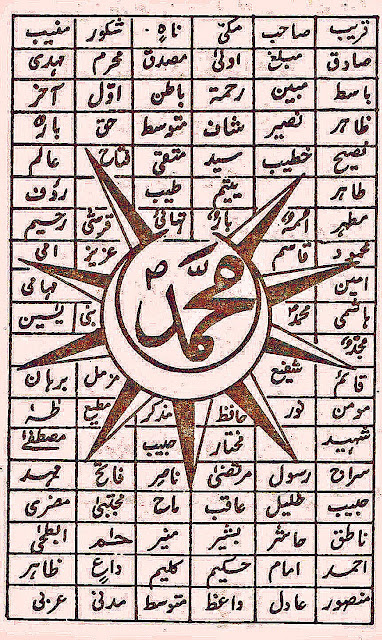 قریب صاحب مکی ناہ شکور منیب
صادق مبلغ اولیٰ مصدق محرم مہدی
باسط مبین رحمۃ باطن اوّل آخر
ظاہر نصیر شاف متوسط حق بارہ
نصیح خطیب سید متقی فتاح عالم
طاہر یتیم طیب رؤف
مطہر احمد بار تہامی قرشی رحیم
محمود قاسم عزیز امی
امین تہامی
ہاشمی محمد نبی یٰسین
محمد
قائم شفیع مزمل برہان
مومن نور حافظ مذکر مطیع طٰہٰ
شہید مختار حبیب مصطفٰے
سراج رسول مرتضیٰ ناصر فاتح مہد
حبیب خلیل عاقب ماح مجتبیٰ مضری
ناطق حاشر بشیر منیر حلم ابطحی
احمد امام حکیم کلیم داع ظاہر
منصور عادل داعظ متوسط مدنی عربی